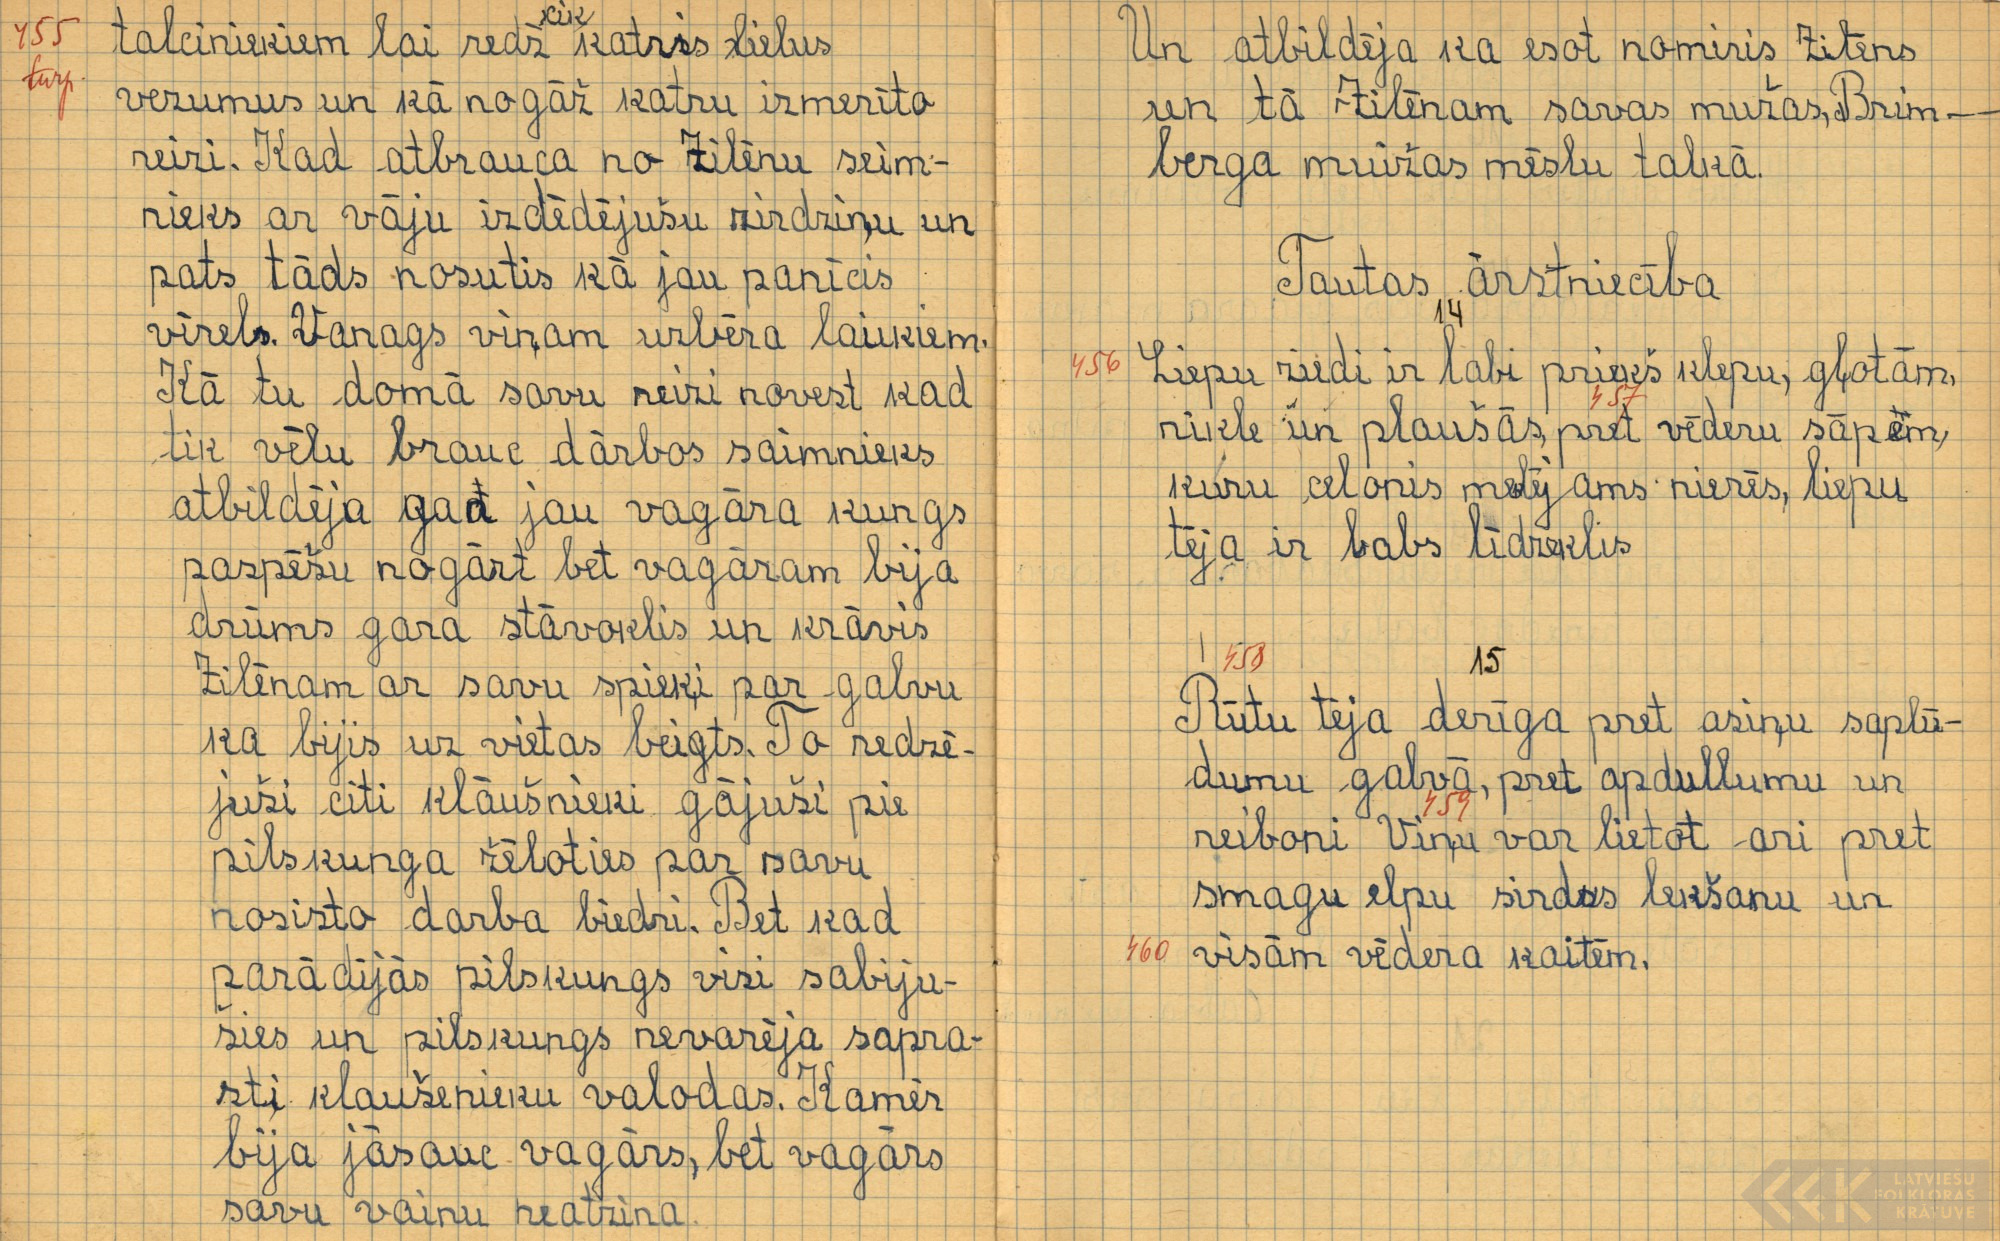 455 talciniekiem lai redz cik katris lielus
turp. vezumus un kā nogāž katru izmerīto
reizi. Kad atbrauca no Zilēnu seim-
nieks ar vāju izdēdējušu zirdziņu un
pats tāds nosutis kā jau panīcis
vīrels. Vanags viņam uzbēra laukiem.
Kā tu domā savu reizi novest kad
tik vēlu brauc dārbos saimnieks
atbildēja gad jau vagāra kungs
paspēšu nogārt bet vagāram bija
drūms gara stāvoklis un krāvis
Zilēnam ar savu spieķi par galvu
ka bijis uz vietas beigts. To redzē-
juši citi klāušnieki gājuši pie
pilskunga žēloties par savu
nosisto darba biedri. Bet kad
parādījās pilskungs visi sabiju-
šies un pilskungs nevarēja sapra-
sti klaušenieku valodas. Kamēr
bija jāsauc vagārs, bet vagārs
savu vainu neatzina.
Un atbildēja ka esot nomiris Zilēns
un tā Zilēnam savas mužas, Brim-
berga muižas mēslu talkā.
Tautas ārstniecība
14
456 Liepu ziedi ir labi priekš klepu, gļotām,
457
rīkle un plaušās, pret vēderu sāpēm,
kuru celonis meklējams nierēs, liepu
tēja ir labs līdzeklis
458 15
Rūtu tēja derīga pret asiņu saplū-
dumu galvā, pret apdullumu un
459
reiboni Viņu var lietot ari pret
smagu elpu sirdas lekšanu un
460 visām vēdera kaitēm.
LATVIEŠU
FOLKLORAS
KRĀTUVE